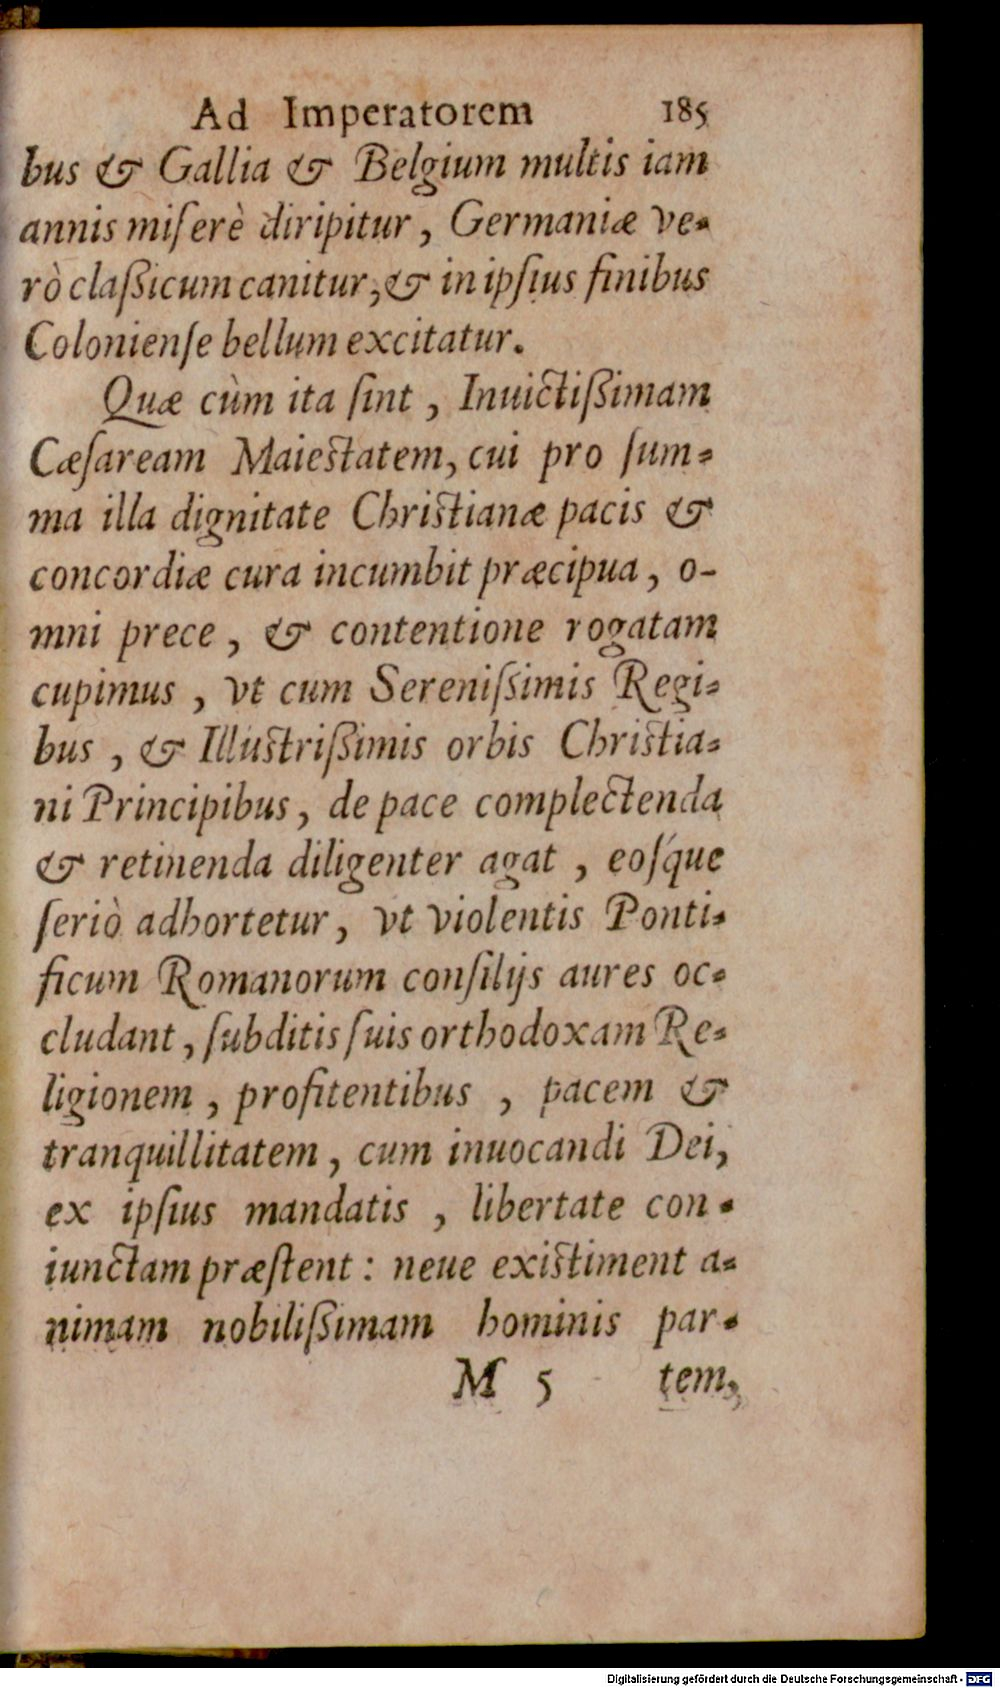 Ad Imperatorem 185
bus & Gallia & Belgium multis iam
annis miſerè diripitur, Germaniæ ve-
rò claßicum canitur, & in ipſius finibus
Colonienſe bellum excitatur.
Quæ cùm ita ſint, Inuictißimam
Cæſaream Maiestatem, cui pro ſum-
ma illa dignitate Christianæ pacis &
concordiæ cura incumbit præcipua, o-
mni prece, & contentione rogatam
cupimus, vt cum Sereniſsimis Regi-
bus, & Illustrißimis orbis Christia-
ni Principibus, de pace complectenda
& retinenda diligenter agat, eoſque
ſeriò adhortetur, vt violentis Ponti-
ficum Romanorum conſilijs aures oc-
cludant, ſubditis ſuis orthodoxam Re-
ligionem, profitentibus, pacem &
tranquillitatem, cum inuocandi Dei,
ex ipſius mandatis, libertate con-
iunctam præſtent: neue existiment a-
nimam nobilißimam hominis par-
M 5 tem,
Digitalisierung gefördert durch die Deutsche Forschungsgemeinschaft - DFG